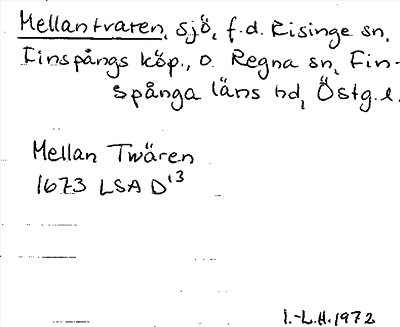 Mellantvaren, sjö, f.d. Risinge sn,
Finspångs köp., o. Regna sn, Fin-
spånga läns hd, Östg.l.
Mellan Twären
1673 LSA D¹³
I.-L.H. 1972